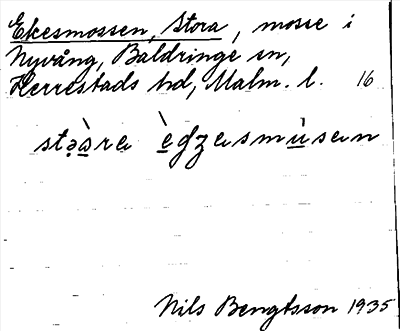 Ekesmossen, Stora, mosse i
Nyvång, Baldringe sn,
Herrestads hd, Malm. l. 16
stəà̱rɐ è̱gʒɐsmù̱sɐn
Nils Bengtsson 1935